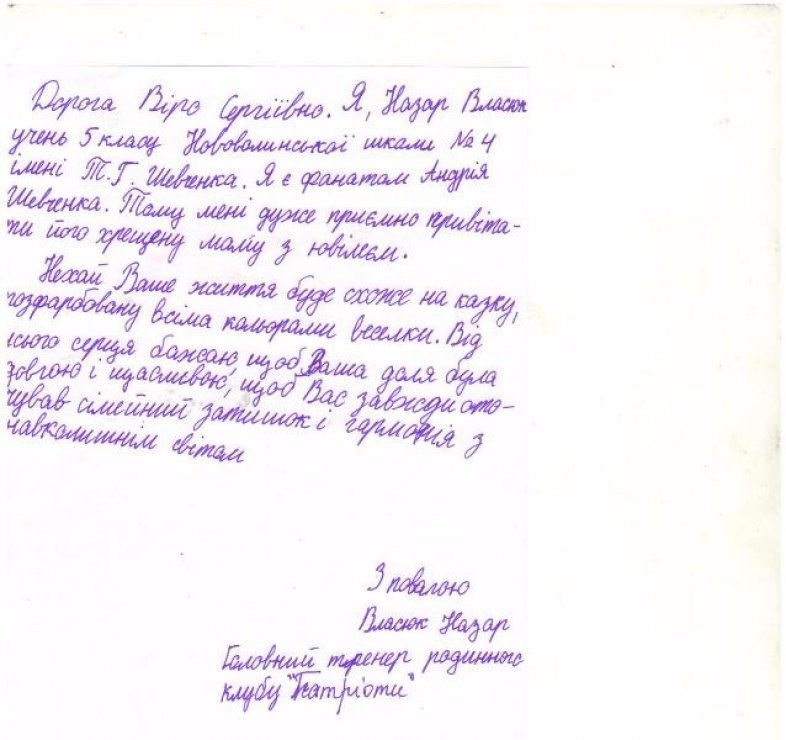 Дорога Віро Сергіївно. Я, Назар Власюк
учень 5 класу Нововолинської школи № 4
імені Т.Г. Шевченка. Я є фанатом Андрія
Шевченка. Тому мені дуже приємно привіта-
ти його хрещену маму з ювілеєм.
Нехай Ваше життя буде схоже на казку,
розфарбовану всіма кольорами веселки. Від
всього серця бажаю, щоб Ваша доля була
довгою і щасливою, щоб Вас завжди ото-
чував сімейний затишок і гармонія з
навколишнім світом
З повагою
Власюк Назар
Головний тренер родинного
клубу "Патріоти"